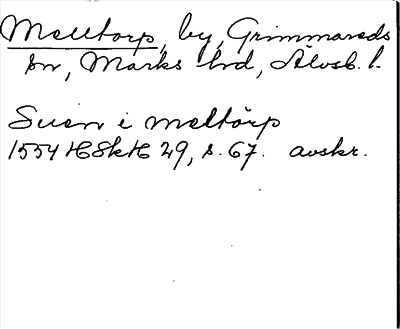 Melltorp, by, Grimmareds
sn, Marks hd, Älvsb. l.
Suen i meltörp
1554 HSkH 29, s. 67. avskr.